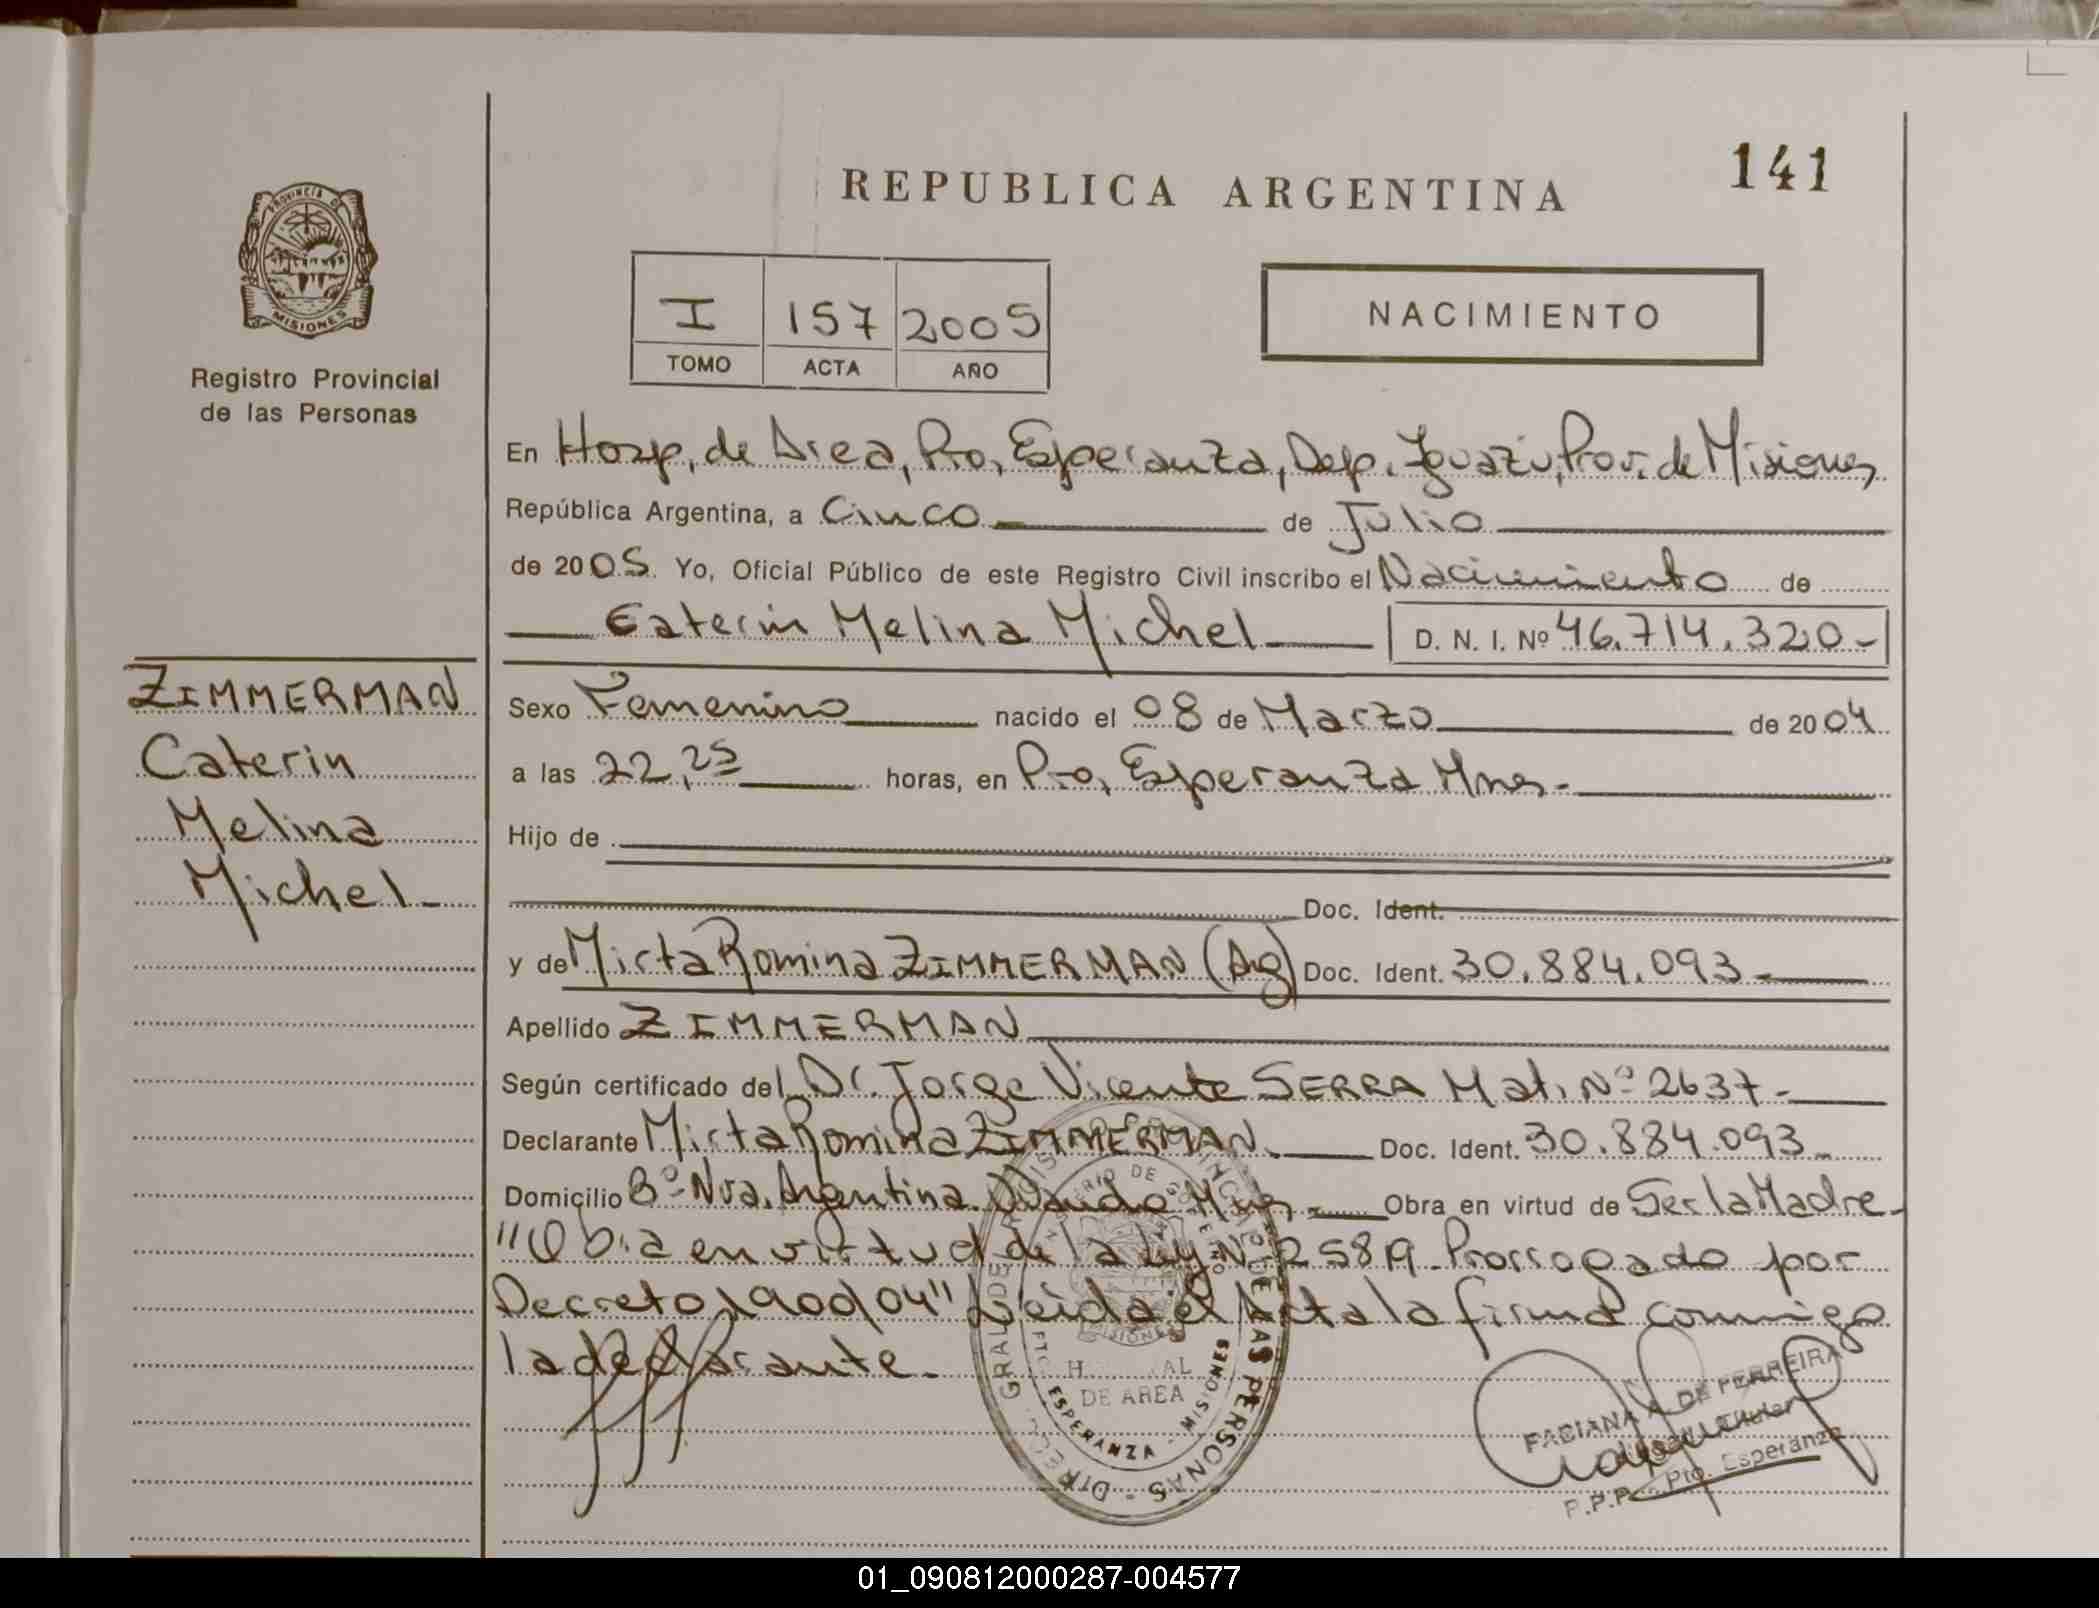 141
REPUBLICA ARGENTINA
PROVINCIA DE
MISIONES
Registro Provincial
de las Personas
I 157 2005
TOMO ACTA AÑO
NACIMIENTO
En Hosp. de Area, Pto. Esperanza, Dep. Iguazú, Prov. de Misiones
República Argentina, a Cinco de Julio
de 2005 Yo, Oficial Público de este Registro Civil inscribo el Nacimiento de
Caterin Melina Michel D. N. I. Nº 46.714.320-
ZIMMERMAN
Caterin
Melina
Michel-
Sexo Femenino nacido el 08 de Marzo de 2004
a las 22,25 horas, en Pto. Esperanza Mnes-
Hijo de
Doc. Ident.
y de Mirta Romina ZIMMERMAN (Ag) Doc. Ident. 30.884.093-
Apellido ZIMMERMAN
Según certificado del Dr. Jorge Vicente SERRA Mat. Nº 2637-
Declarante Mirta Romina ZIMMERMAN. Doc. Ident. 30.884.093-
Domicilio Bº Nva. Argentina. Wanda Mnes- Obra en virtud de Ser la Madre-
"Obra en virtud de la Ley Nº 25819- Prorrogado por
Decreto 1900/04" Leida el Acta la firma conmigo
la declarante.
HOSPITAL
DE AREA
PTO. ESPERANZA - MISIONES
FABIANA A. DE FERREIRA
Titular
R.P.P. - Pto. Esperanza
01_090812000287-004577